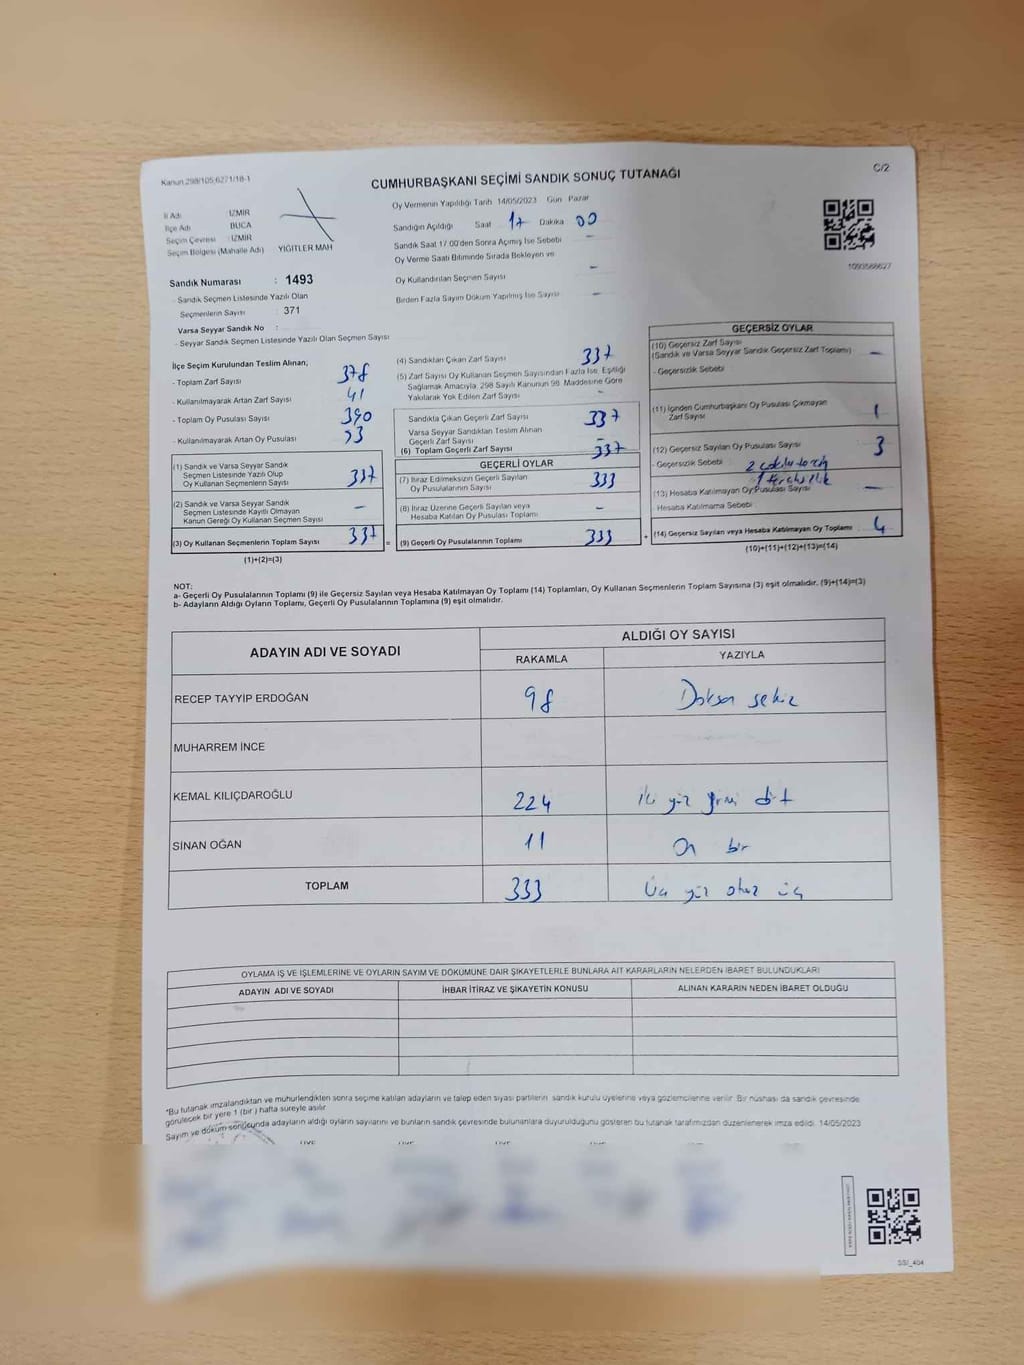 Kanun 298/105,6271/18-1
C/2
CUMHURBAŞKANI SEÇİMİ SANDIK SONUÇ TUTANAĞI
İl Adı İZMİR
İlçe Adı BUCA
Seçim Çevresi : İZMİR
Seçim Bölgesi (Mahalle Adı) YİĞİTLER MAH
Sandık Numarası : 1493
- Sandık Seçmen Listesinde Yazılı Olan
Seçmenlerin Sayısı : 371
Varsa Seyyar Sandık No :
- Seyyar Sandık Seçmen Listesinde Yazılı Olan Seçmen Sayısı
Oy Vermenin Yapıldığı Tarih 14/05/2023 Gün Pazar
Sandığın Açıldığı Saat 17 Dakika 00
Sandık Saat 17:00'den Sonra Açılmış İse Sebebi –
Oy Verme Saati Bitiminde Sırada Bekleyen ve
Oy Kullandırılan Seçmen Sayısı –
Birden Fazla Sayım Döküm Yapılmış İse Sayısı –
1093566627
İlçe Seçim Kurulundan Teslim Alınan,
- Toplam Zarf Sayısı 378
- Kullanılmayarak Artan Zarf Sayısı 41
- Toplam Oy Pusulası Sayısı 390
- Kullanılmayarak Artan Oy Pusulası 53
(1) Sandık ve Varsa Seyyar Sandık
Seçmen Listesinde Yazılı Olup
Oy Kullanan Seçmenlerin Sayısı 337
(2) Sandık ve Varsa Seyyar Sandık
Seçmen Listesinde Kayıtlı Olmayan
Kanun Gereği Oy Kullanan Seçmen Sayısı –
(3) Oy Kullanan Seçmenlerin Toplam Sayısı 337
(1)+(2)=(3)
(4) Sandıktan Çıkan Zarf Sayısı 337
(5) Zarf Sayısı Oy Kullanan Seçmen Sayısından Fazla İse, Eşitliği
Sağlamak Amacıyla, 298 Sayılı Kanunun 98. Maddesine Göre
Yakılarak Yok Edilen Zarf Sayısı –
Sandıkta Çıkan Geçerli Zarf Sayısı 337
Varsa Seyyar Sandıktan Teslim Alınan
Geçerli Zarf Sayısı –
(6) Toplam Geçerli Zarf Sayısı 337
GEÇERLİ OYLAR
(7) İtiraz Edilmeksizin Geçerli Sayılan
Oy Pusulalarının Sayısı 333
(8) İtiraz Üzerine Geçerli Sayılan veya
Hesaba Katılan Oy Pusulası Toplamı –
= (9) Geçerli Oy Pusulalarının Toplamı 333
GEÇERSİZ OYLAR
(10) Geçersiz Zarf Sayısı
(Sandık ve Varsa Seyyar Sandık Geçersiz Zarf Toplamı) –
- Geçersizlik Sebebi
(11) İçinden Cumhurbaşkanı Oy Pusulası Çıkmayan
Zarf Sayısı 1
(12) Geçersiz Sayılan Oy Pusulası Sayısı 3
- Geçersizlik Sebebi 2
1
(13) Hesaba Katılmayan Oy Pusulası Sayısı –
Hesaba Katılmama Sebebi
+ (14) Geçersiz Sayılan veya Hesaba Katılmayan Oy Toplamı 4
(10)+(11)+(12)+(13)=(14)
NOT:
a- Geçerli Oy Pusulalarının Toplamı (9) ile Geçersiz Sayılan veya Hesaba Katılmayan Oy Toplamı (14) Toplamları, Oy Kullanan Seçmenlerin Toplam Sayısına (3) eşit olmalıdır. (9)+(14)=(3)
b- Adayların Aldığı Oyların Toplamı, Geçerli Oy Pusulalarının Toplamına (9) eşit olmalıdır.
ADAYIN ADI VE SOYADI
ALDIĞI OY SAYISI
RAKAMLA YAZIYLA
RECEP TAYYİP ERDOĞAN 98 Doksan sekiz
MUHARREM İNCE
KEMAL KILIÇDAROĞLU 224 iki yüz yirmi dört
SİNAN OĞAN 11 On bir
TOPLAM 333 Üç yüz otuz üç
OYLAMA İŞ VE İŞLEMLERİNE VE OYLARIN SAYIM VE DÖKÜMÜNE DAİR ŞİKAYETLERLE BUNLARA AİT KARARLARIN NELERDEN İBARET BULUNDUKLARI
ADAYIN ADI VE SOYADI İHBAR İTİRAZ VE ŞİKAYETİN KONUSU ALINAN KARARIN NEDEN İBARET OLDUĞU
*Bu tutanak imzalandıktan ve mühürlendikten sonra seçime katılan adayların ve talep eden siyasi partilerin sandık kurulu üyelerine veya gözlemcilerine verilir. Bir nüshası da sandık çevresinde
görülecek bir yere 1 (bir) hafta süreyle asılır
Sayım ve döküm sonucunda adayların aldığı oyların sayılarını ve bunların sandık çevresinde bulunanlara duyurulduğunu gösteren bu tutanak tarafımızdan düzenlenerek imza edildi. 14/05/2023
SSİ_404